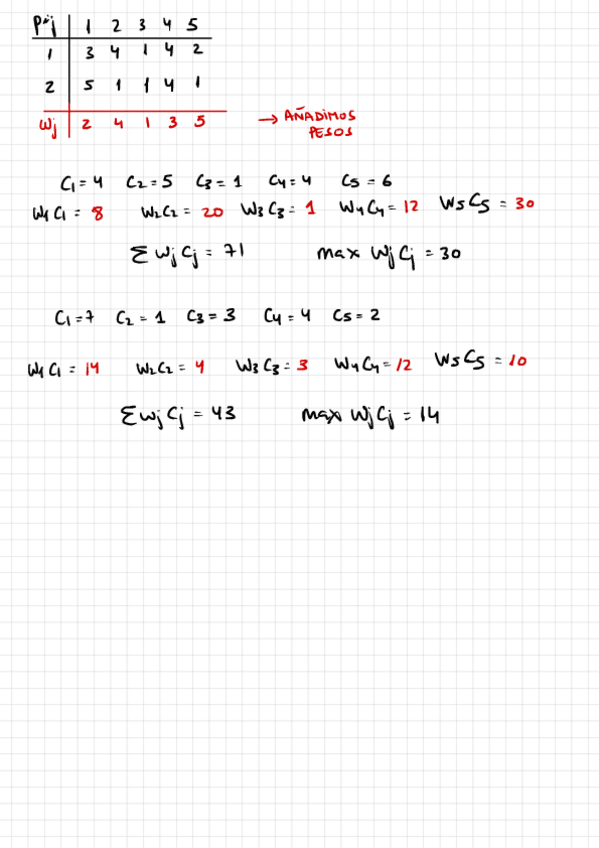 Pij 1 2 3 4 5
1 3 4 1 4 2
2 5 1 1 4 1
Wj 2 4 1 3 5 → AÑADIMOS
PESOS
C1 = 4 C2 = 5 C3 = 1 C4 = 4 C5 = 6
W1 C1 = 8 W2 C2 = 20 W3 C3 = 1 W4 C4 = 12 W5 C5 = 30
Σ Wj Cj = 71 max Wj Cj = 30
C1 = 7 C2 = 1 C3 = 3 C4 = 4 C5 = 2
W1 C1 = 14 W2 C2 = 4 W3 C3 = 3 W4 C4 = 12 W5 C5 = 10
Σ Wj Cj = 43 max Wj Cj = 14